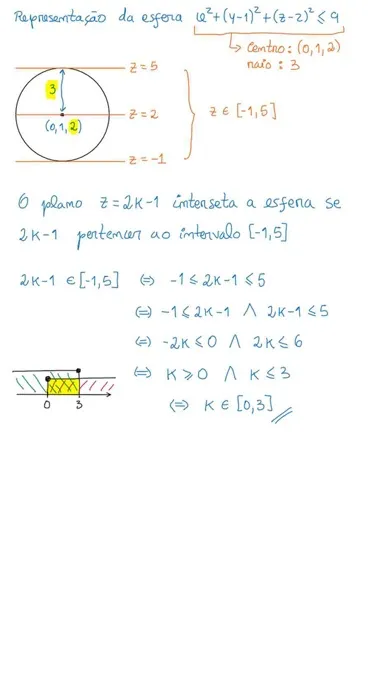 Representação da esfera x²+(y-1)²+(z-2)² ≤ 9
Centro: (0,1,2)
raio: 3
z = 5
3
z = 2
z ∈ [-1,5]
(0,1,2)
z = -1
O plano z = 2k-1 interseta a esfera se
2k-1 pertencer ao intervalo [-1,5]
2k-1 ∈ [-1,5] ⇔ -1 ≤ 2k-1 ≤ 5
⇔ -1 ≤ 2k-1 ∧ 2k-1 ≤ 5
⇔ -2k ≤ 0 ∧ 2k ≤ 6
⇔ k ≥ 0 ∧ k ≤ 3
0 3
⇔ k ∈ [0,3]